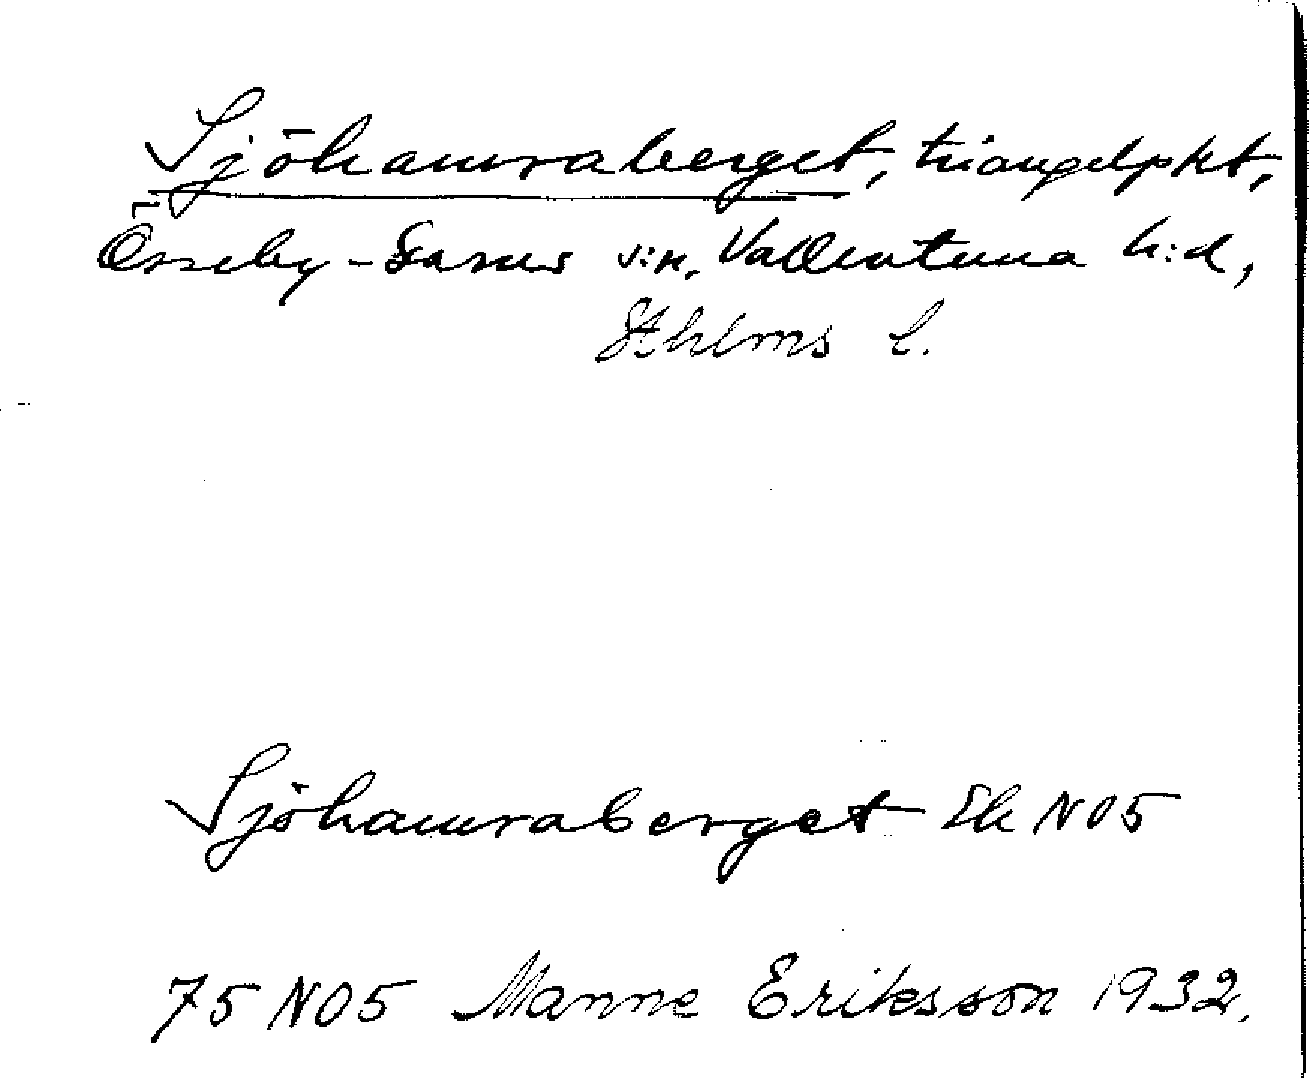 Sjöhamraberget, triangelpkt,
Össeby-Garns s:n, Vallentuna h:d,
Sthlms l.
Sjöhamraberget Ek NO5
75 NO5 Manne Eriksson 1932.